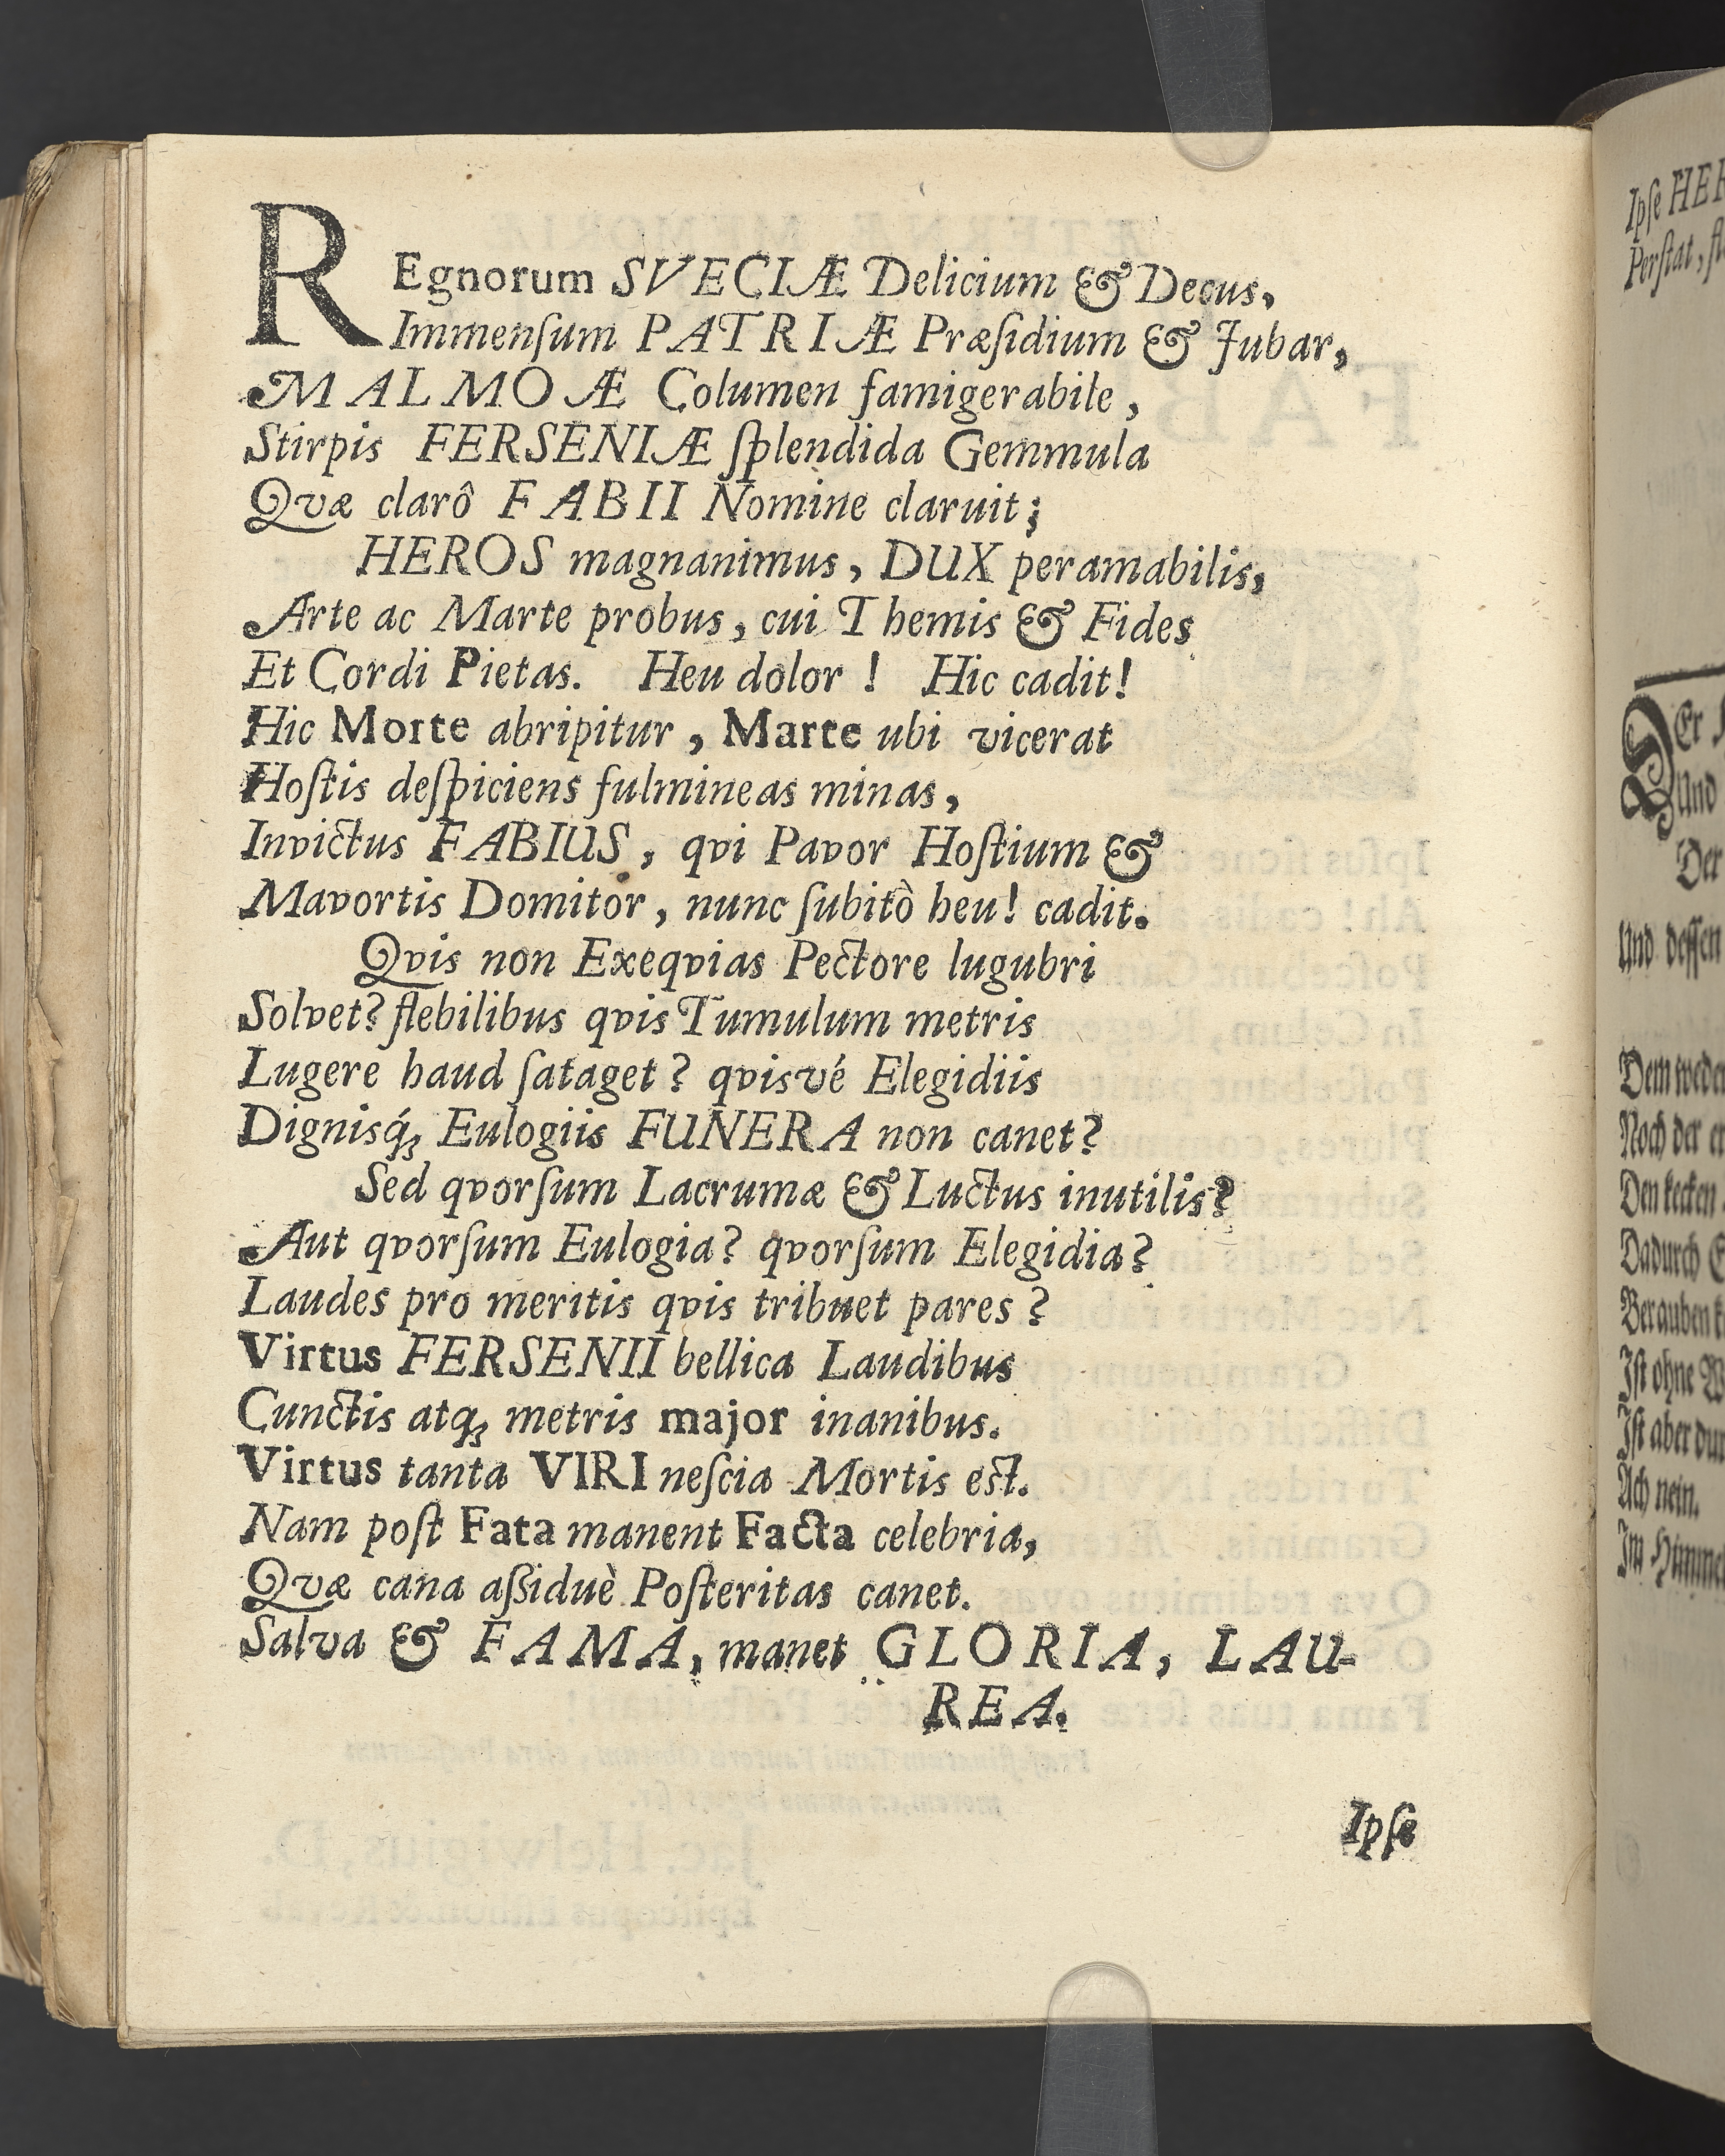 REgnorum SVECIÆ Delicium & Decus,
Immenſum PATRIÆ Præſidium & Jubar,
MALMOÆ Columen famigerabile,
Stirpis FERSENIÆ ſplendida Gemmula
Qvæ clarô FABII Nomine claruit;
HEROS magnanimus, DUX peramabilis,
Arte ac Marte probus, cui Themis & Fides
Et Cordi Pietas. Heu dolor! Hic cadit!
Hic Morte abripitur, Marte ubi vicerat
Hoſtis deſpiciens fulmineas minas,
Invictus FABIUS, qvi Pavor Hoſtium &
Mavortis Domitor, nunc ſubitò heu! cadit.
Qvis non Exeqvias Pectore lugubri
Solvet? flebilibus qvis Tumulum metris
Lugere haud ſataget? qvisvé Elegidiis
Dignisq́ꝫ Eulogiis FUNERA non canet?
Sed qvorſum Lacrumæ & Luctus inutilis?
Aut qvorſum Eulogia? qvorſum Elegidia?
Laudes pro meritis qvis tribuet pares?
Virtus FERSENII bellica Laudibus
Cunctis atqꝫ metris major inanibus.
Virtus tanta VIRI neſcia Mortis est.
Nam poſt Fata manent Facta celebria,
Qvæ cana aſſiduè Poſteritas canet.
Salva & FAMA, manet GLORIA, LAU-
REA.
Ipſe
Ipſe
Perſtat,
Er
Und
Der
Und deſſen
Dem weder
Noch der
Den kecken
Dadurch
Berauben
Iſt ohne
Iſt aber
Ach nein.
Im Himmel